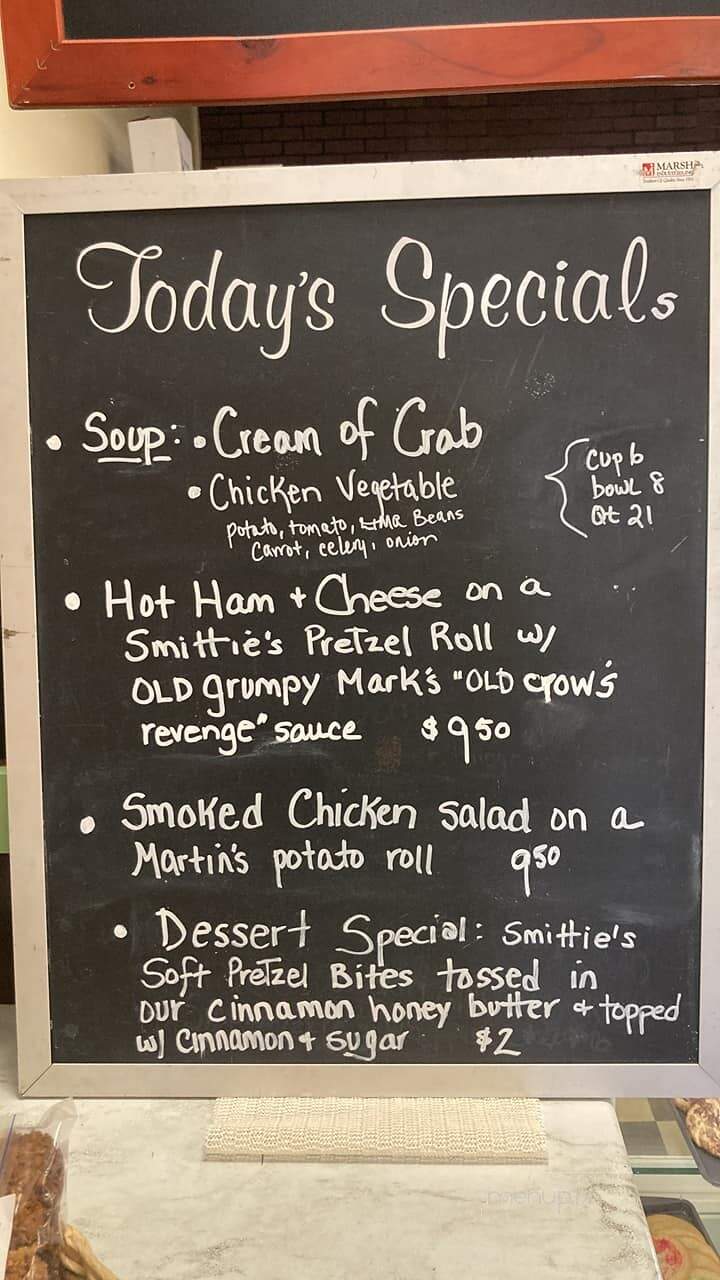 MARSH
INDUSTRIES, INC
Today's Specials
• Soup: • Cream of Crab
• Chicken Vegetable
potato, tomato, Lima Beans
Carrot, celery, onion
cup 6
bowl 8
Qt 21
• Hot Ham + Cheese on a
Smittie's Pretzel Roll w/
OLD grumpy Mark's "OLD crow's
revenge" sauce $ 9 50
• Smoked Chicken salad on a
Martin's potato roll 9 50
• Dessert Special: Smittie's
Soft Pretzel Bites tossed in
our cinnamon honey butter + topped
w/ cinnamon + sugar $2